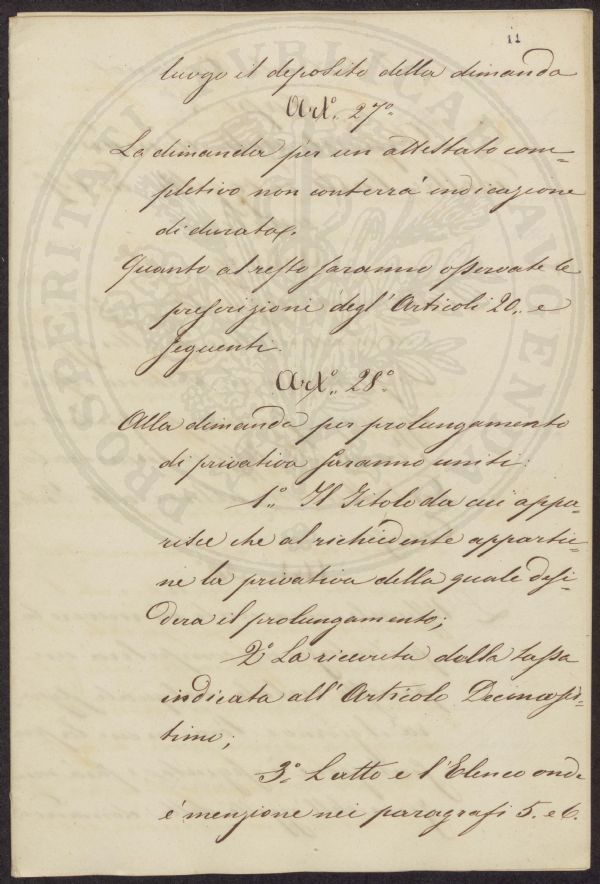 11
luogo il deposito della dimanda
Art.º 27º
La dimanda per un attestato com=
pletivo non conterrà indicazione
di durata.
Quanto al resto saranno osservate le
prescrizioni degl'Articoli 20. e
seguenti.
Art.º 28º
Alla dimanda per prolungamento
di privativa saranno uniti:
1º Il Titolo da cui appa=
risce che al richiedente apparti=
ne la privativa della quale desi=
dera il prolungamento;
2º La ricevuta della tassa
indicata all'Articolo Decimoset=
timo;
3º L'atto e l'Elenco onde
è menzione nei paragrafi 5. e 6.
PROSPERITATI PUBLICAE AUGENDAE